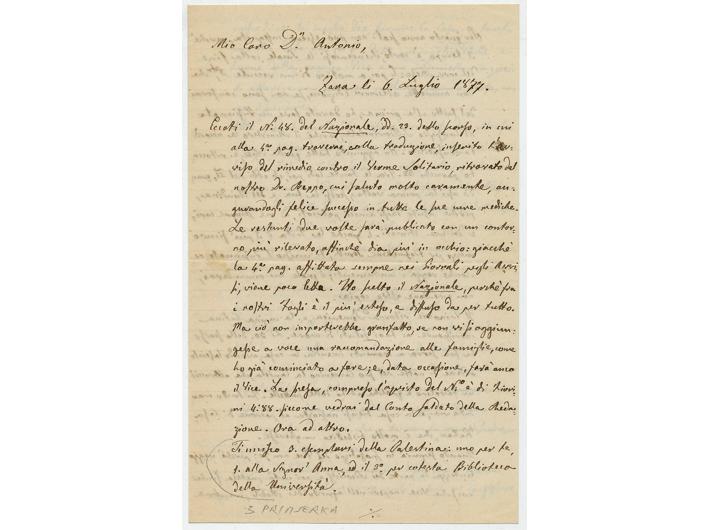 Mio Caro D.n Antonio,
Zara li 6. Luglio 1877.
Eccoti il N.o 48. del Nazionale, dd. 23. dello scorso, in cui
alla 4.a pag. troverai, colla traduzione, inserito l'av-
viso del rimedio contro il Verme Solitario, ritrovato dal
nostro Dr. Beppo, cui saluto molto caramente, au-
gurandogli felice successo in tutte le sue cure mediche.
Le restanti due volte sarà publicato con un contor-
no più rilevato, affinchè dia più in occhio: giacchè
la 4.a pag. affittata sempre nei Giornali pegli Avvi-
si, viene poco letta. Ho scelto il Nazionale, perchè fra
i nostri Fogli è il più esteso, e diffuso da per tutto.
Ma ciò non importerebbe granfatto, se non vi si aggiun-
gesse a voce una raccomandazione alle famiglie, come
ho già cominciato a fare; e, data occasione, farà anco
il Vice. La spesa, compreso l'acquisto del N.o è di Fiori-
ni 4:88. siccome vedrai dal Conto saldato della Reda-
zione. Ora ad altro.
Ti unisco 3. esemplari della Palestina: uno per te,
1. alla Signor' Anna, ed il 3.o per cotesta Biblioteca
della Università.
3 PRIMJERKA